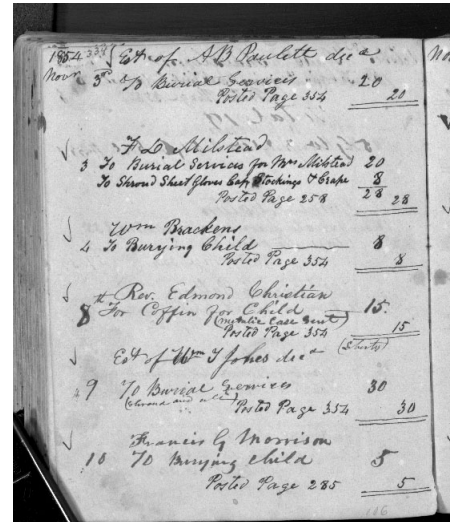 1854 339 Est of A B Paulett decd
Novr 3rd To Burial Services 20
Posted Page 354 20
F L Milstead
3 To Burial Services for Mrs Milstead 20
To Shroud Sheet Gloves Cap Stockings & Crape 8
Posted Page 258 28 28
Wm Brackens
4 To Burying Child 8
Posted Page 354 8
Rev. Edmond Christian
8th For Coffin for Child 15.
(metalic Case Sent)
Posted Page 354 15
Est of Wm T Johes decd
9 To Burial Services 30
(Shroud and all)
Posted Page 354 30
Francis G Morrison
10 To Burying Child 5
Posted Page 285 5
106